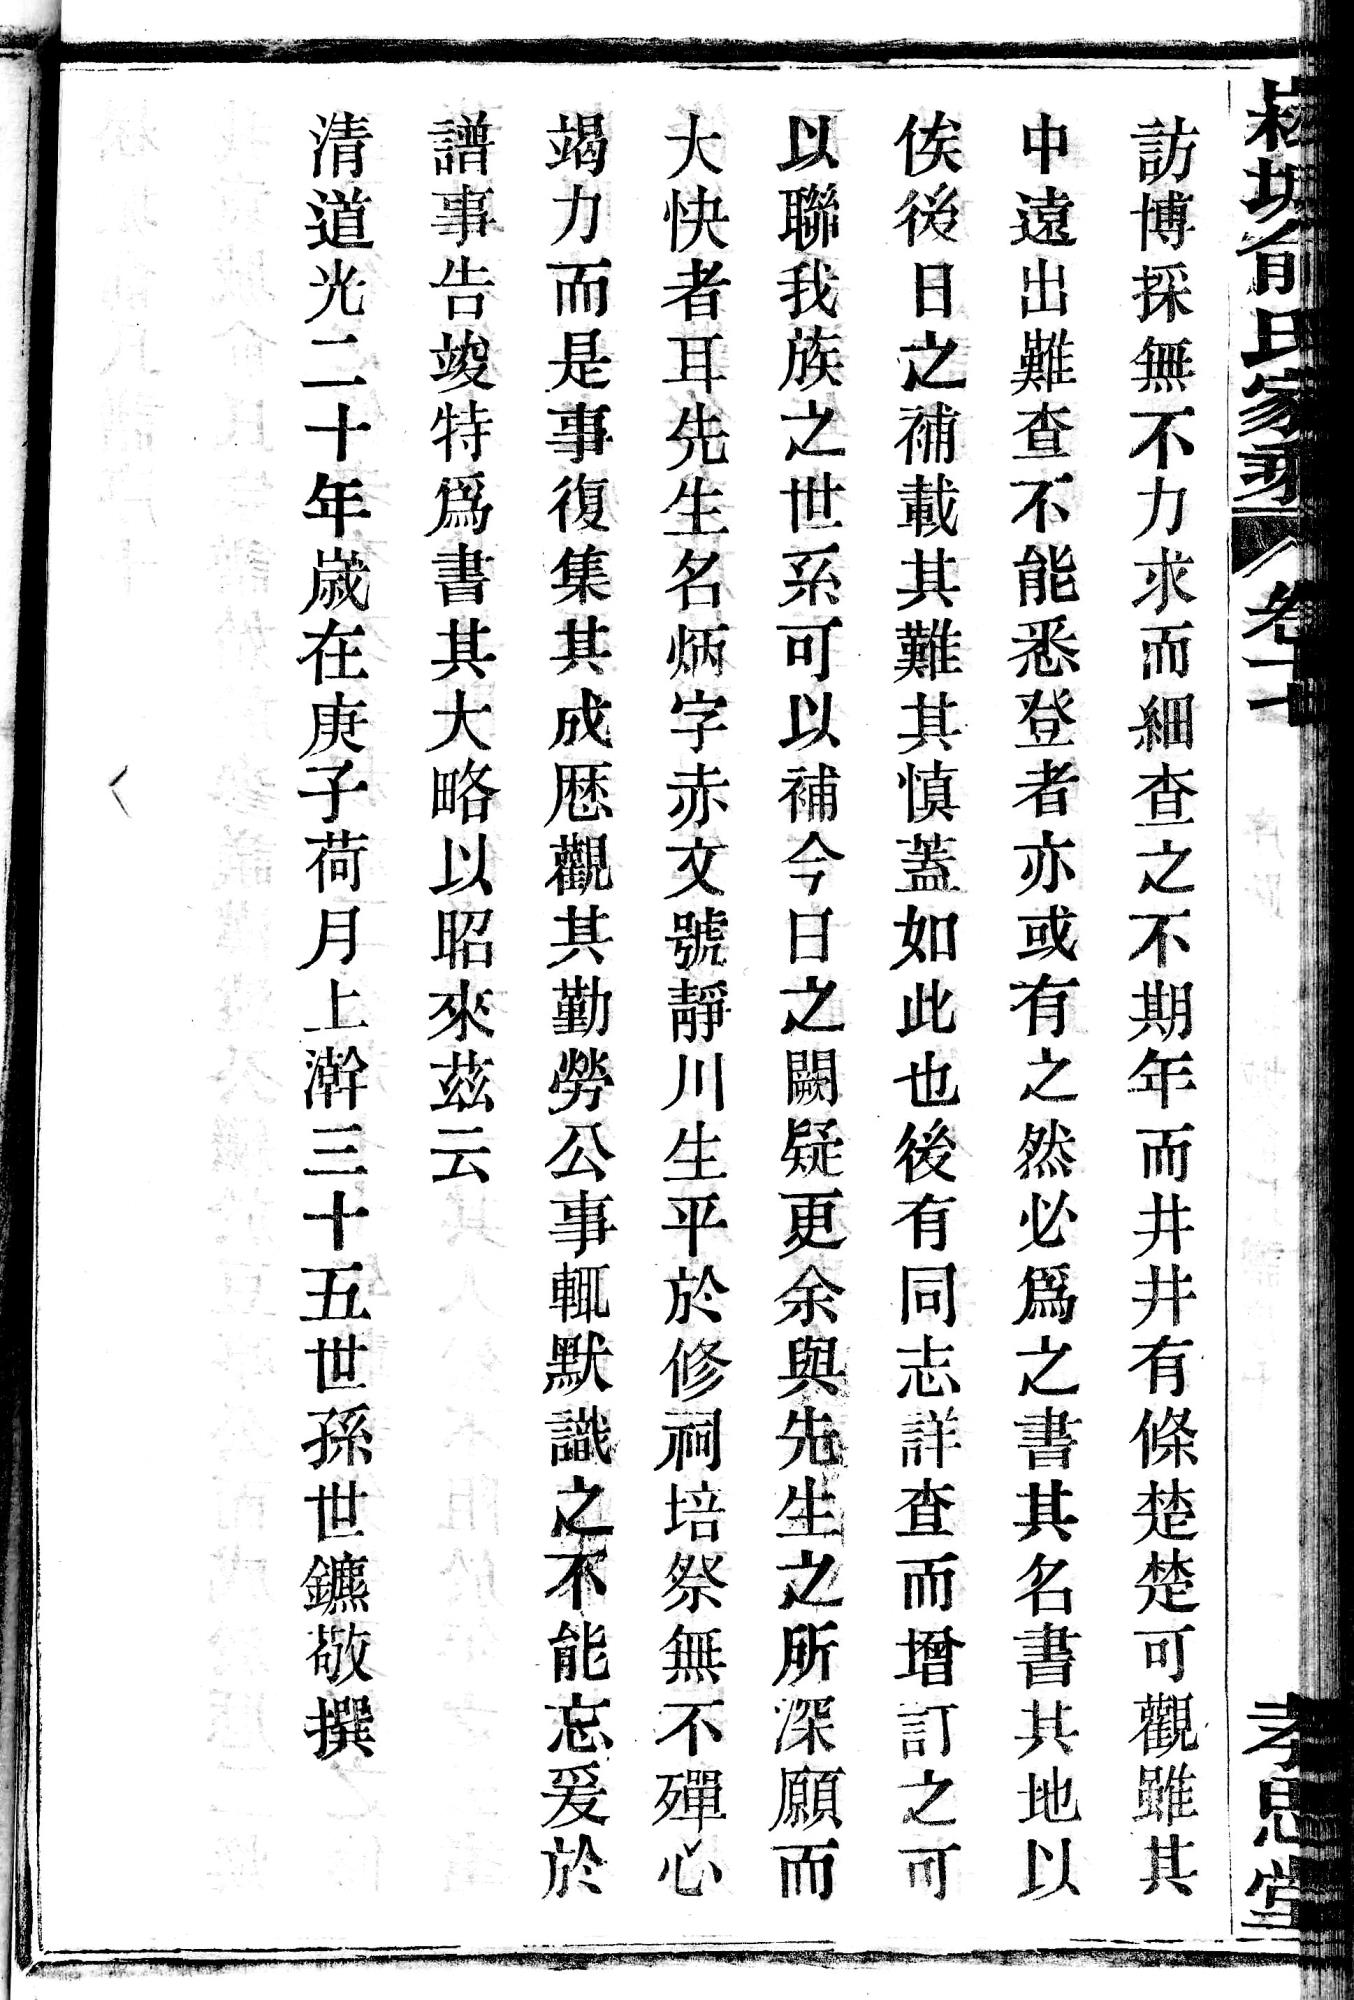 氏家乘
卷十
孝思堂
訪博採無不力求而細查之不期年而井井有條楚楚可觀雖其
中遠出難查不能悉登者亦或有之然必爲之書其名書其地以
俟後日之補載其難其慎蓋如此也後有同志詳查而增訂之可
以聯我族之世系可以補今日之闕疑更余與先生之所深願而
大快者耳先生名炳字赤文號靜川生平於修祠培祭無不殫心
竭力而是事復集其成歷觀其勤勞公事輒默識之不能忘爰於
譜事告竣特爲書其大略以昭來茲云
清道光二十年歲在庚子荷月上澣三十五世孫世鑣敬撰